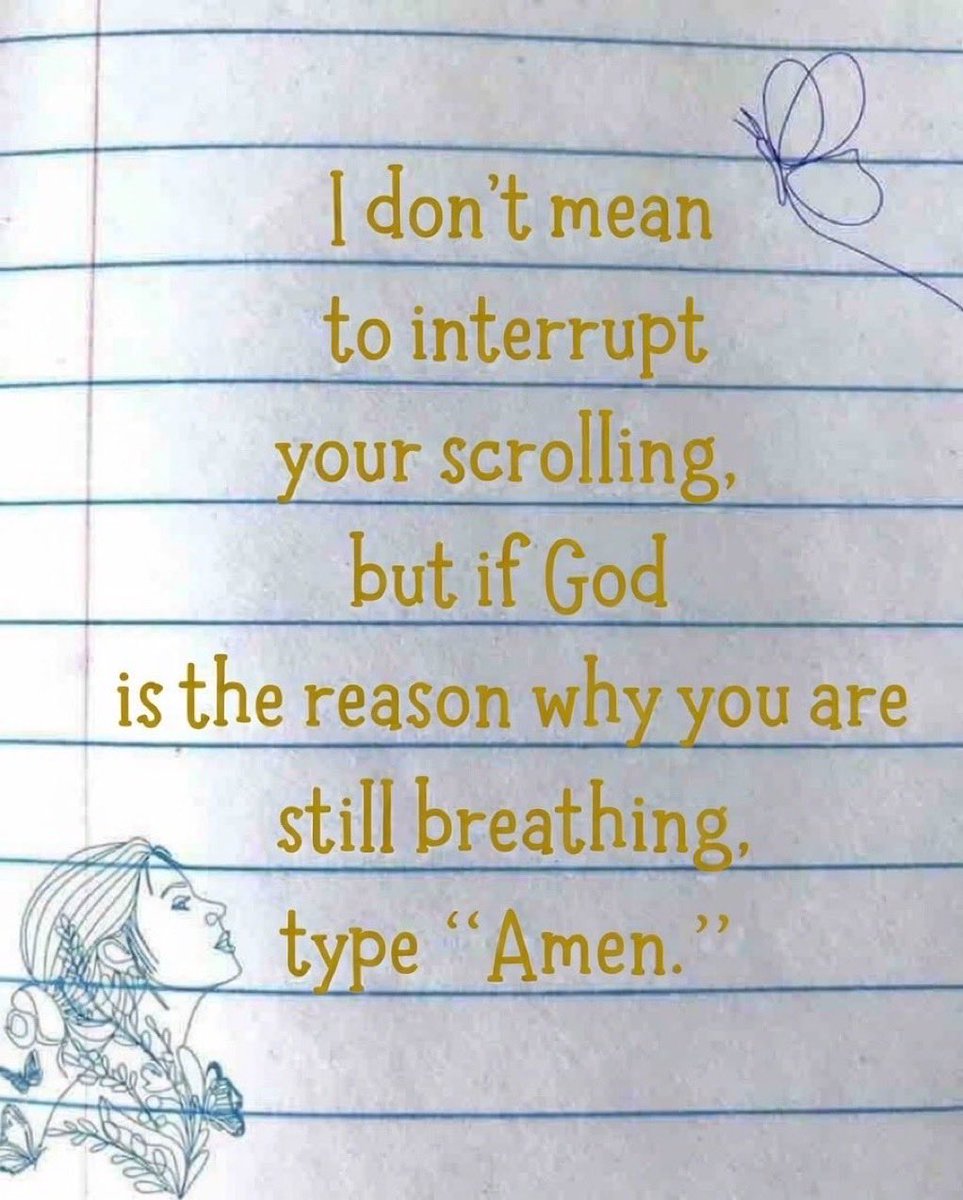 I don’t mean
to interrupt
your scrolling,
but if God
is the reason why you are
still breathing,
type “Amen.”